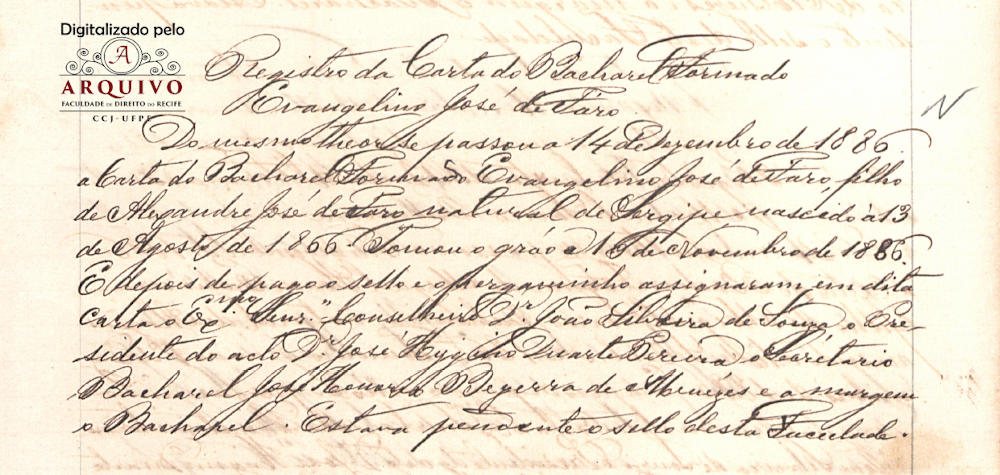 Digitalizado pelo
A
ARQUIVO
FACULDADE DE DIREITO DO RECIFE
CCJ-UFPE
Registro da Carta do Bacharel Formado
Evangelino José de Faro
N
Do mesmo theor se passou a 14 de Dezembro de 1886
a Carta do Bacharel Formado Evangelino José de Faro, filho
de Alexandre José de Faro natural de Sergipe nascido à 13
de Agosto de 1866. Tomou o gráo a de Novembro de 1886.
E depois de pago o sello e o pergaminho assignaram em dita
Carta o Exmo. Senr. Conselheiro Dr. João Silveira de Souza o Pre-
sidente do acto Dr. José Hygino Duarte Pereira o Secretario
Bacharel José Honorio Bezerra de Menezes e a margem
o Bacharel. Estava pendente o sello desta Faculdade.